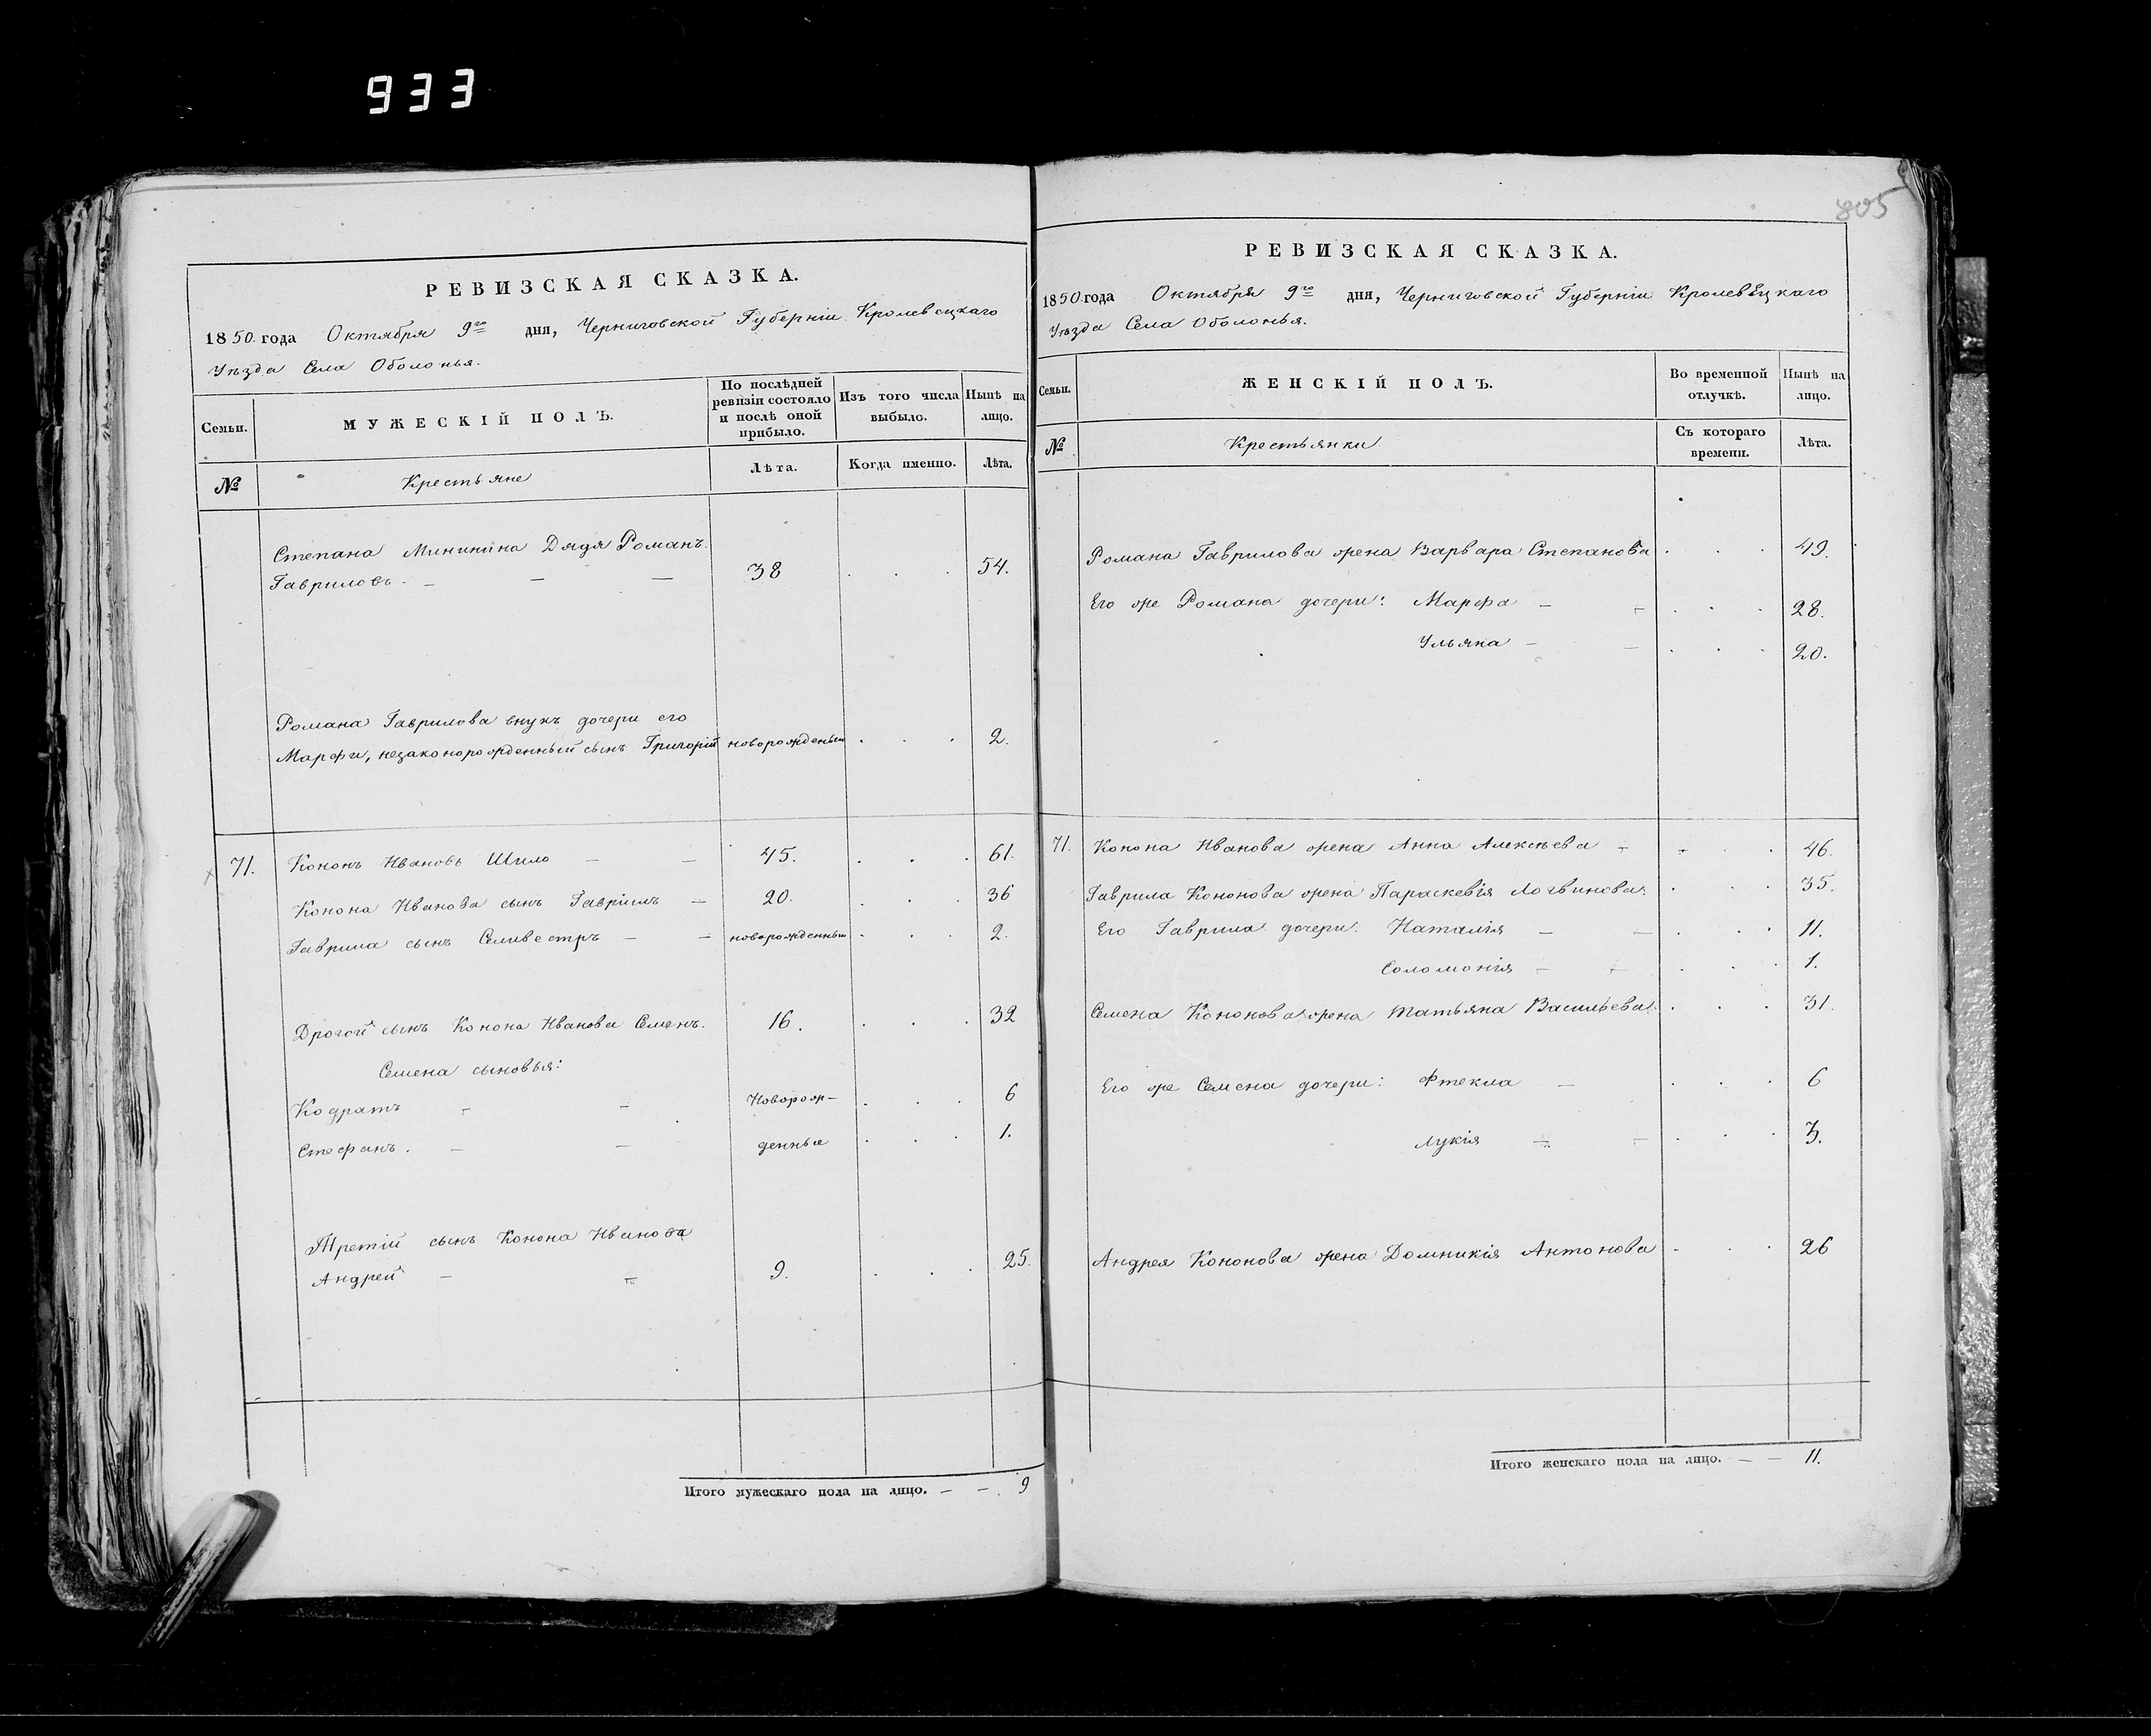 933
805
РЕВИЗСКАЯ СКАЗКА.
1850 года Октября 9го дня, Черниговской Губерніи Кролевецкаго
Уѣзда Села Оболонья.
Семьи.
МУЖЕСКІЙ ПОЛЪ.
По послѣдней
ревизіи состояло
и послѣ оной
прибыло.
Изъ того числа
выбыло.
Нынѣ на
лицо.
№
Крестьяне
Лѣта.
Когда именно.
Лѣта.
Степана Минина Дядя Романъ
Гавриловъ. — — — 38 . . . 54.
Романа Гаврилова внукъ дочери его
Марфи, незаконорожденный сынъ Григорій новорожденый . . . 2.
71. Кононъ Ивановъ Шило — — 45. . . . 61.
Конона Иванова сынъ Гавріилъ — 20. . . . 36
Гаврила сынъ Селивестръ — — новорожденный . . . 2.
Дрогой сынъ Конона Иванова Семенъ. 16. . . . 32
Семена сыновья:
Кодратъ — — Новорож- . . . 6
Стефанъ. — — денные . . . 1.
Третій сынъ Конона Иванова
Андрей — — 9. . . . 25.
Итого мужескаго пола на лицо. — — 9
РЕВИЗСКАЯ СКАЗКА.
1850 года Октября 9го дня, Черниговской Губерніи Кролевѣцкаго
Уѣзда Села Оболонья.
Семьи.
ЖЕНСКІЙ ПОЛЪ.
Во временной
отлучкѣ.
Нынѣ на
лицо.
№
Крестьянки
Съ котораго
времени.
Лѣта.
Романа Гаврилова жена Варвара Степанова . . . 49.
Его же Романа дочери: Марфа — — . . . 28.
Ульяна — — . . . 20.
71. Конона Иванова жена Анна Алексѣева — — . . 46.
Гаврила Кононова жена Параскевія Логвинова. . . . 35.
Его Гаврила дочери: Наталія — — . . . 11.
Соломонія — — . . . 1.
Семена Кононова жена Татьяна Васильева. . . . 31.
Его же Семена дочери: Фтекла — . . . 6
Лукія — — . . . 3.
Андрея Кононова жена Домникія Антонова . . . 26
Итого женскаго пола на лицо. — — 11.